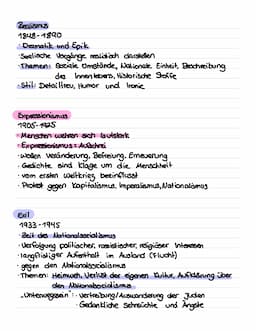 Realismus
1848-1890
· Dramatik und Epik
· Seelische Vorgänge realistisch darstellen
· Themen: Soziale Umstände, Nationale Einheit, Beschreibung
des Innenlebens, Historische Stoffe
· Stil: Detailtreu, Humor und Ironie
Expressionismus
1905-1925
· Menschen wehren sich lautstark
· Expressionismus: Aufschrei
· wollen Veränderung, Befreiung, Erneuerung
· Gedichte sind Klage um die Menschheit
· vom ersten Weltkrieg beeinflusst
· Protest gegen Kapitalismus, Imperialismus, Nationalismus
Exil
1933-1945
· Zeit des Nationalsozialismus
· Verfolgung politischer, rassistischer, religiöser Interessen
· langfristiger Aufenthalt im Ausland (Flucht)
· gegen den Nationalsozialismus
· Themen: Heimweh, Verlust der eigenen Kultur, Aufklärung über
den Nationalsozialismus
· „Unterwegssein": · Vertreibung/Auswanderung der Juden
· Gedankliche Sehnsüchte und Ängste